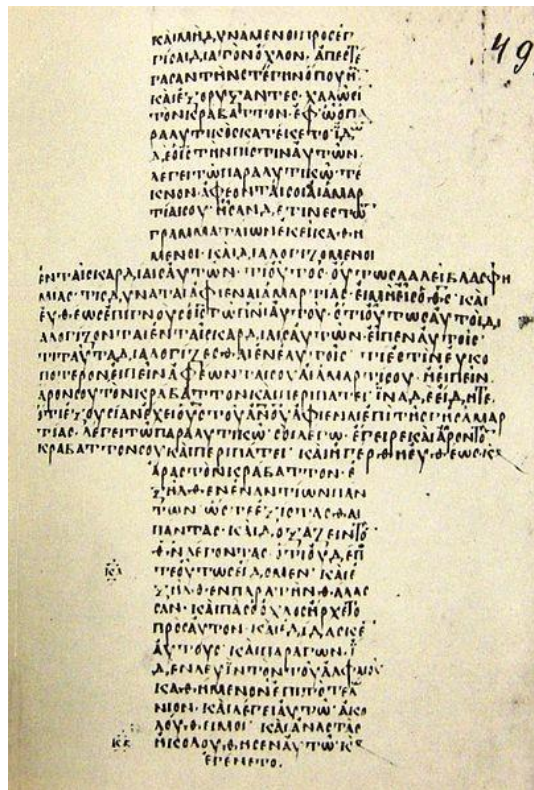 49
ΚΑΙΜΗΔΥΝΑΜΕΝΟΙΠΡΟΣΕΓ
ΓΙΣΑΙΔΙΑΤΟΝΟΧΛΟΝ· ΑΠΕΣΤΕ
ΓΑΣΑΝΤΗΝΣΤΕΓΗΝΟΠΟΥΗ
ΚΑΙΕΞΟΡΥΞΑΝΤΕΣ· ΧΑΛΩΣΙ
ΤΟΝΚΡΑΒΑΤΤΟΝ· ΕΦΩΟΠΑ
ΡΑΛΥΤΙΚΟΣΚΑΤΕΚΕΙΤΟ·
ΤΗΝΠΙΣΤΙΝΑΥΤΩΝ·
ΛΕΓΕΙΤΩΠΑΡΑΛΥΤΙΚΩ· ΤΕ
ΚΝΟΝ· ΑΦΕΟΝΤΑΙΣΟΙΑΙΑΜΑΡ
ΤΙΑΙΣΟΥ· ΗΣΑΝΔΕΤΙΝΕΣΤΩ
ΓΡΑΜΜΑΤΑΙΩΝΕΚΕΙΚΑΘΗ
ΜΕΝΟΙ· ΚΑΙΔΙΑΛΟΓΙΖΟΜΕΝΟΙ
ΕΝΤΑΙΣΚΑΡΔΙΑΙΣΑΥΤΩΝ· ΤΙΟΥΤΟΣ· ΟΥΤΩΣΛΑΛΕΙΒΛΑΣΦΗ
ΜΙΑΣ· ΤΙΣΔΥΝΑΤΑΙΑΦΙΕΝΑΙΑΜΑΡΤΙΑΣ· ΕΙΜΗΕΙΣΟΘΣ· ΚΑΙ
ΕΥΘΕΩΣΕΠΙΓΝΟΥΣΟΙΣΤΩΠΝΙΑΥΤΟΥ· ΟΤΙΟΥΤΩΣΑΥΤΟΙΔΙ
ΑΛΟΓΙΖΟΝΤΑΙΕΝΤΑΙΣΚΑΡΔΙΑΙΣΑΥΤΩΝ· ΕΙΠΕΝΑΥΤΟΙΣ·
ΤΙΤΑΥΤΑΔΙΑΛΟΓΙΖΕΣΘΑΙΕΝΕΑΥΤΟΙΣ· ΤΙΕΣΤΙΝΕΥΚΟ
ΠΟΤΕΡΟΝΕΙΠΕΙΝΑΦΕΩΝΤΑΙΣΟΥΑΙΑΜΑΡΤΙΣΟΥ· ΗΕΙΠΕΙΝ
ΑΡΟΝΣΟΥΤΟΝΚΡΑΒΑΤΤΟΝΚΑΙΠΕΡΙΠΑΤΕΙ· ΙΝΑΔΕΕΙΔΗΤΕ
ΟΤΙΕΞΟΥΣΙΑΝΕΧΕΙΟΥΣΤΟΥΑΝΟΥΑΦΙΕΝΑΙΕΠΙΤΗΣΓΗΣΑΜΑΡ
ΤΙΑΣ· ΛΕΓΕΙΤΩΠΑΡΑΛΥΤΙΚΩ· ΣΟΙΛΕΓΩ· ΕΓΕΙΡΕΚΑΙΑΡΟΝΤΟ
ΚΡΑΒΑΤΤΟΝΣΟΥΚΑΙΠΕΡΙΠΑΤΕΙ· ΚΑΙΗΓΕΡΘΗΕΥΘΕΩΣΚ
ΑΡΑΣΤΟΝΚΡΑΒΑΤΤΟΝ· Ε
ΞΗΛΘΕΝΕΝΑΝΤΙΩΝΠΑΝ
ΤΩΝ· ΩΣΤΕΕΞΙΣΤΑΣΘΑΙ
ΠΑΝΤΑΣ· ΚΑΙΔΟΞΑΖΕΙΝΤΟ
ΘΝΛΕΓΟΝΤΑΣ· ΟΤΙΟΥΔΕΠ
ΤΕΟΥΤΩΣΕΙΔΟΜΕΝ· ΚΑΙΕ
ΞΗΛΘΕΝΠΑΡΑΤΗΝΘΑΛΑΣ
ΣΑΝ· ΚΑΙΠΑΣΟΟΧΛΟΣΗΡΧΕΤΟ
ΠΡΟΣΑΥΤΟΝ· ΚΑΙΕΔΙΔΑΣΚΕ
ΑΥΤΟΥΣ· ΚΑΙΠΑΡΑΓΩΝ· Ι
ΔΕΝΛΕΥΙΝΤΟΝΤΟΥΑΛΦΑΙΟΥ
ΚΑΘΗΜΕΝΟΝΕΠΙΤΟΤΕΛ
ΝΙΟΝ· ΚΑΙΛΕΓΕΙΑΥΤΩ· ΑΚΟ
ΛΟΥΘΕΙΜΟΙ· ΚΑΙΑΝΑΣΤΑΣ
ΗΚΟΛΟΥΘΗΣΕΝΑΥΤΩ· Κ
ΕΓΕΝΕΤΟ·